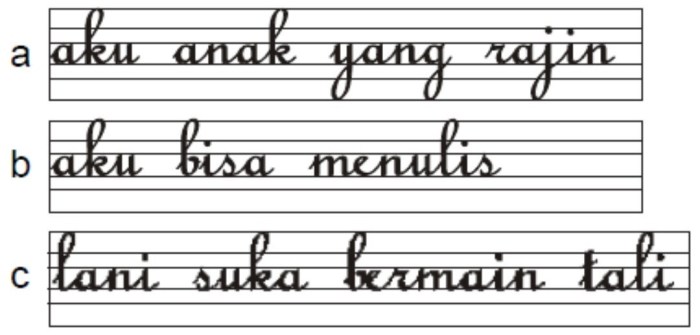 a aku anak yang rajin
b aku bisa menulis
c lani suka bermain tali